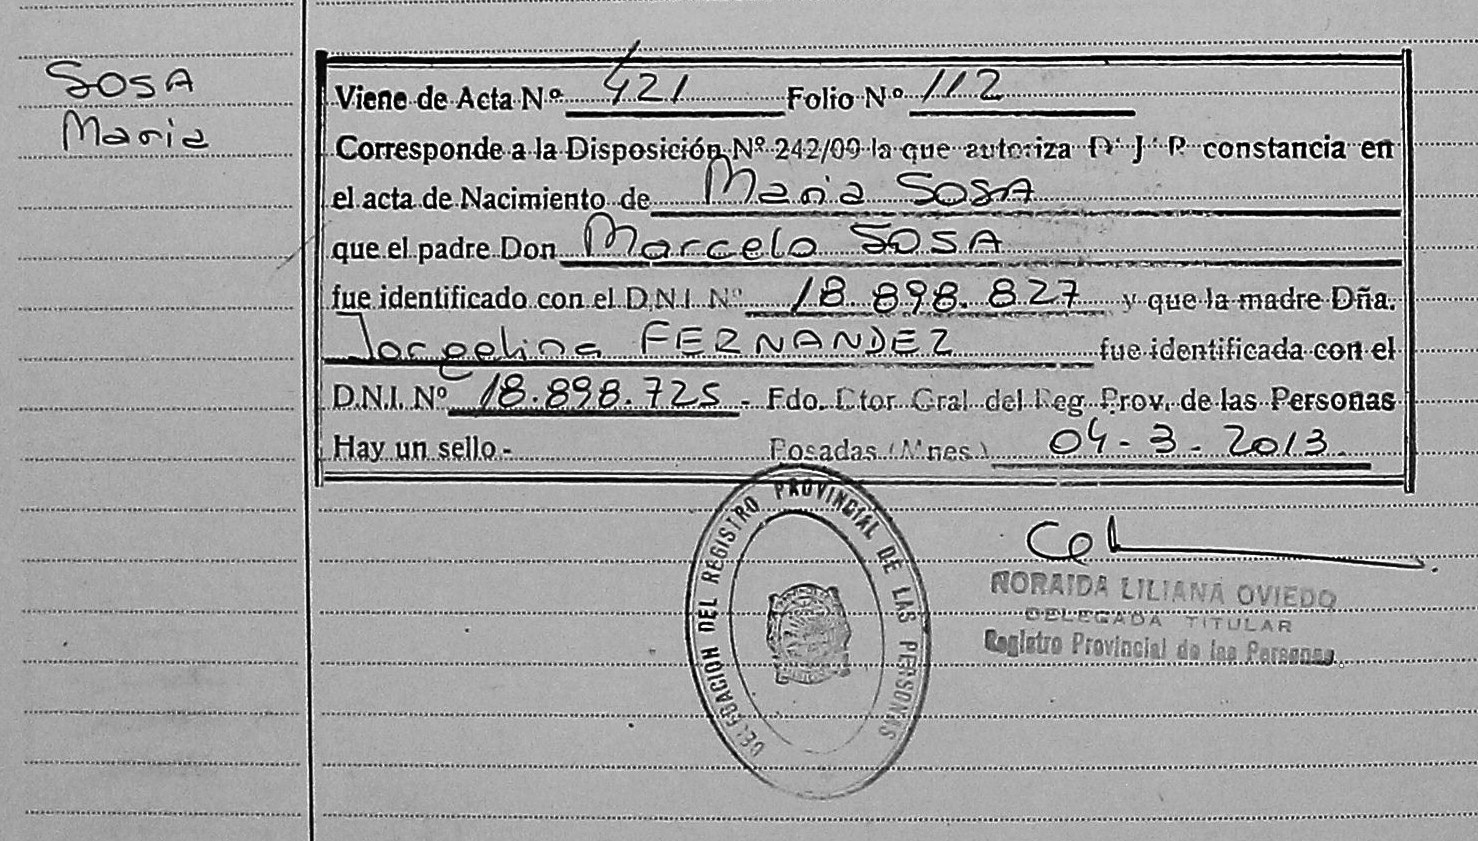 SOSA
Maria
Viene de Acta Nº 421 Folio Nº 112
Corresponde a la Disposición Nº 242/09 la que autoriza D J P constancia en
el acta de Nacimiento de Maria SOSA
que el padre Don Marcelo SOSA
fue identificado con el D.N.I. Nº 18 898.827 y que la madre Dña.
Jorgelina FERNANDEZ fue identificada con el
D.N.I. Nº 18.898.725 - Fdo. Dtor. Gral. del Reg. Prov. de las Personas
Hay un sello - Posadas (Mnes.) 04-3-2013
DELEGACION DEL REGISTRO PROVINCIAL DE LAS PERSONAS
NORAIDA LILIANA OVIEDO
DELEGADA TITULAR
Registro Provincial de las Personas